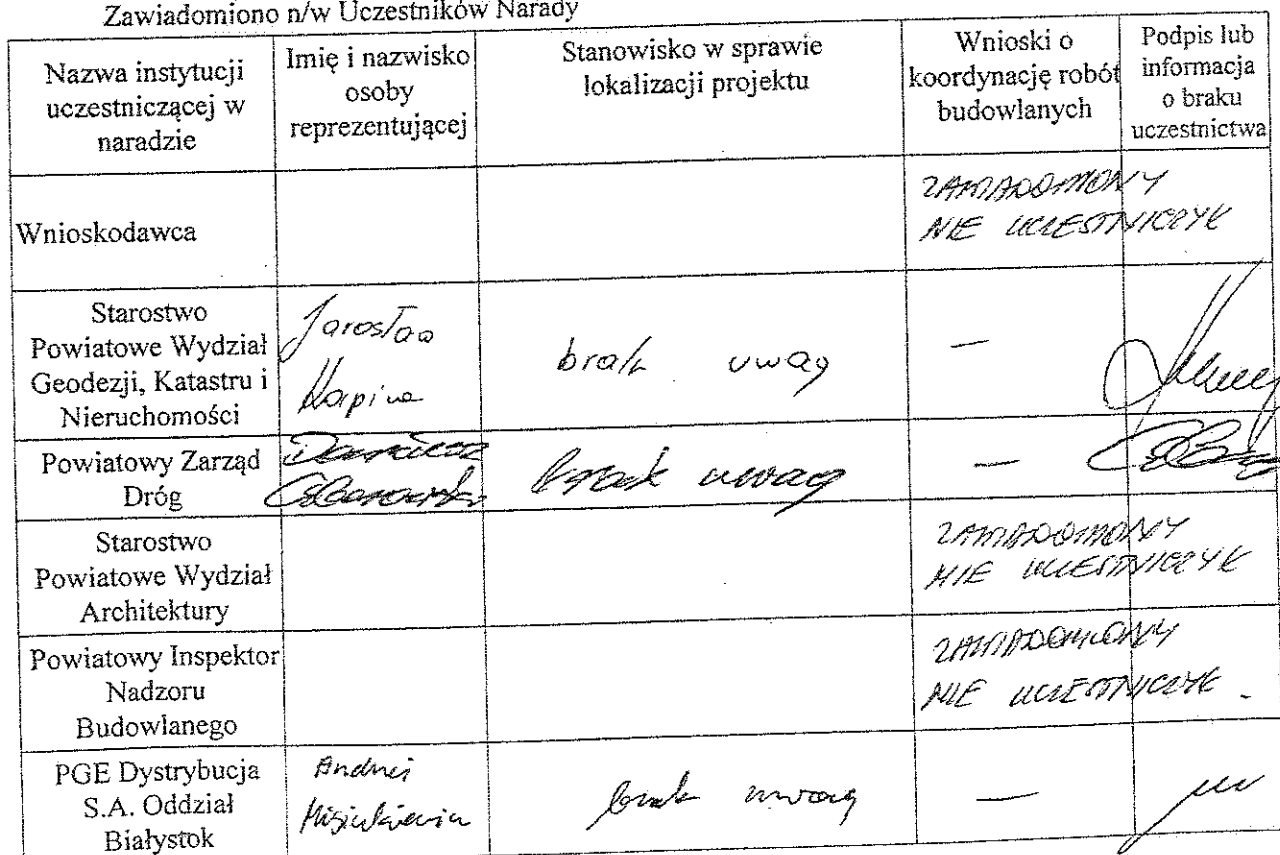 Zawiadomiono n/w Uczestników Narady
Nazwa instytucji
uczestniczącej w
naradzie
Imię i nazwisko
osoby
reprezentującej
Stanowisko w sprawie
lokalizacji projektu
Wnioski o
koordynację robót
budowlanych
Podpis lub
informacja
o braku
uczestnictwa
Wnioskodawca
ZAWIADOMIONY
NIE UCZESTNICZYŁ
Starostwo
Powiatowe Wydział
Geodezji, Katastru i
Nieruchomości
Jarosław
brak uwag
—
Powiatowy Zarząd
Dróg
Dariusz
brak uwag
—
Starostwo
Powiatowe Wydział
Architektury
ZAWIADOMIONY
NIE UCZESTNICZYŁ
Powiatowy Inspektor
Nadzoru
Budowlanego
ZAWIADOMIONY
NIE UCZESTNICZYŁ
PGE Dystrybucja
S.A. Oddział
Białystok
Andrzej
brak uwag
—